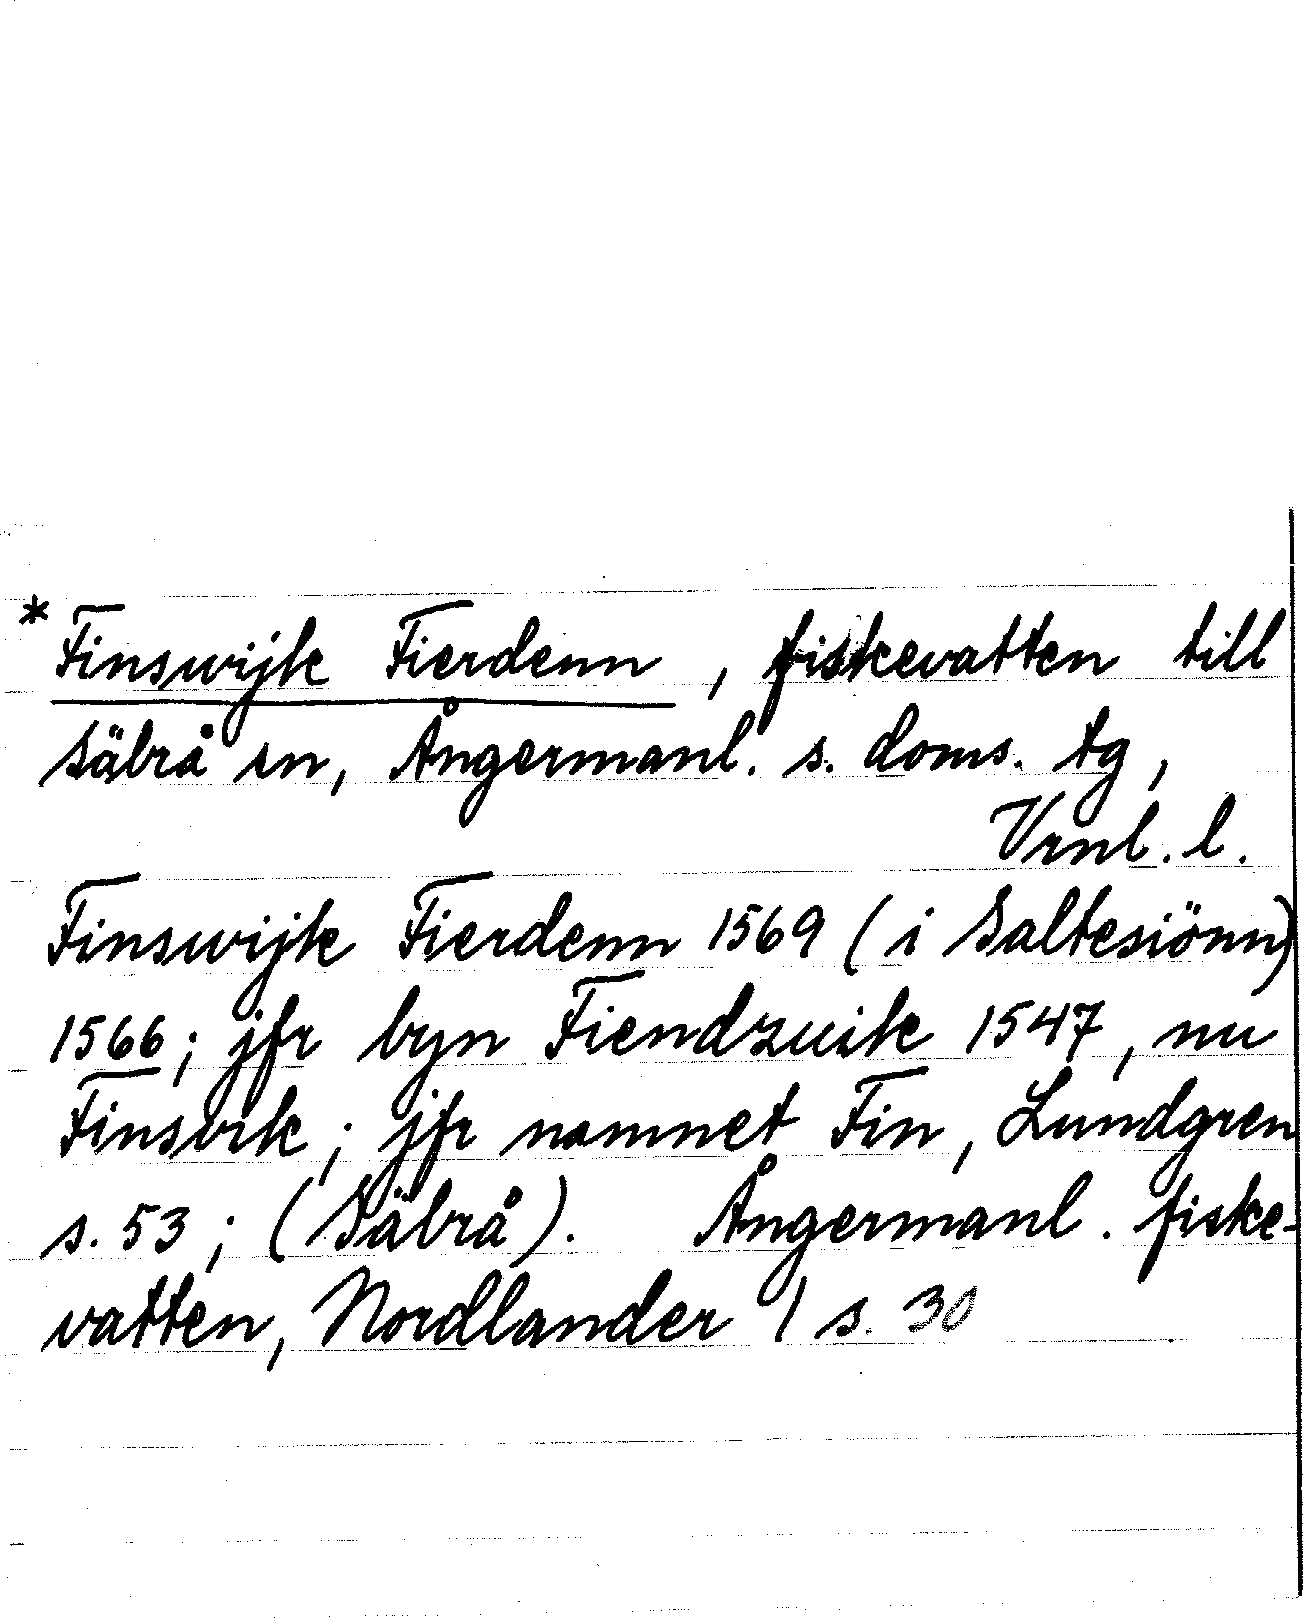 * Finswijk Fierdenn, fiskevatten till
Säbrå sn, Ångermanl. s. doms. tg,
Vrnl. l.
Finswijk Fierdenn 1569 (i Saltesiönn)
1566; jfr byn Fiendzuik 1547, nu
Finsvik; jfr namnet Fin, Lundgren
s. 53; (Säbrå). Ångermanl. fiske-
vatten, Nordlander 1 s. 30